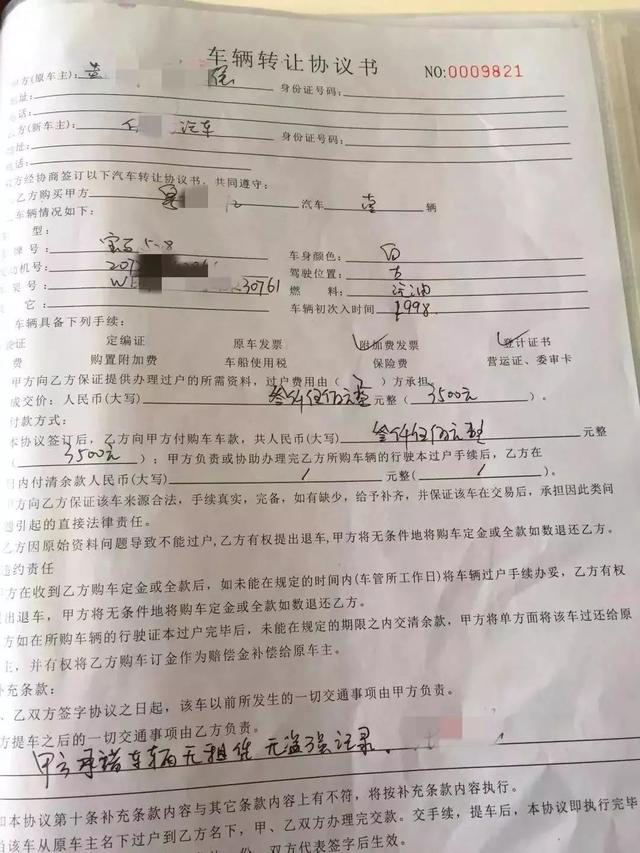 车辆转让协议书
NO:0009821
甲方(原车主): 身份证号码:
地址:
电话:
乙方(新车主): 汽车 身份证号码:
地址:
电话:
双方经协商签订以下汽车转让协议书,共同遵守:
乙方购买甲方 汽车 壹 辆
车辆情况如下:
型:
牌号: 车身颜色: 白
动机号: 驾驶位置: 左
架号: 30761 燃 料: 汽油
它: 车辆初次入时间: 1998
车辆具备下列手续:
驶证 定编证 原车发票 附加费发票 登计证书
费 购置附加费 车船使用税 保险费 营运证、委审卡
甲方向乙方保证提供办理过户的所需资料,过户费用由( )方承担
成交价: 人民币(大写) 叁仟伍佰元整 元整( 3500元 )
付款方式:
本协议签订后,乙方向甲方付购车车款,共人民币(大写) 叁仟伍佰元整 元整
( 3500元 ); 甲方负责或协助办理完乙方所购车辆的行驶本过户手续后,乙方在
日内付清余款人民币(大写) / 元整( / )
甲方向乙方保证该车来源合法,手续真实,完备,如有缺少,给予补齐,并保证该车在交易后,承担因此类问
题引起的直接法律责任。
乙方因原始资料问题导致不能过户,乙方有权提出退车,甲方将无条件地将购车定金或全款如数退还乙方。
违约责任
方在收到乙方购车定金或全款后,如未能在规定的时间内(车管所工作日)将车辆过户手续办妥,乙方有权
提出退车,甲方将无条件地将购车定金或全款如数退还乙方。
方如在所购车辆的行驶证本过户完毕后,未能在规定的期限之内交清余款,甲方将单方面将该车过还给原
主,并有权将乙方购车订金作为赔偿金补偿给原车主。
补充条款:
、乙双方签字协议之日起,该车以前所发生的一切交通事项由甲方负责。
方提车之后的一切交通事项由乙方负责。
甲方承诺车辆无租借 无盗强记录.
如本协议第十条补充条款内容与其它条款内容上有不符,将按补充条款内容执行。
当该车从原车主名下过户到乙方名下,甲、乙双方办理完交款。交手续,提车后,本协议即执行完毕
份,双方代表签字后生效。